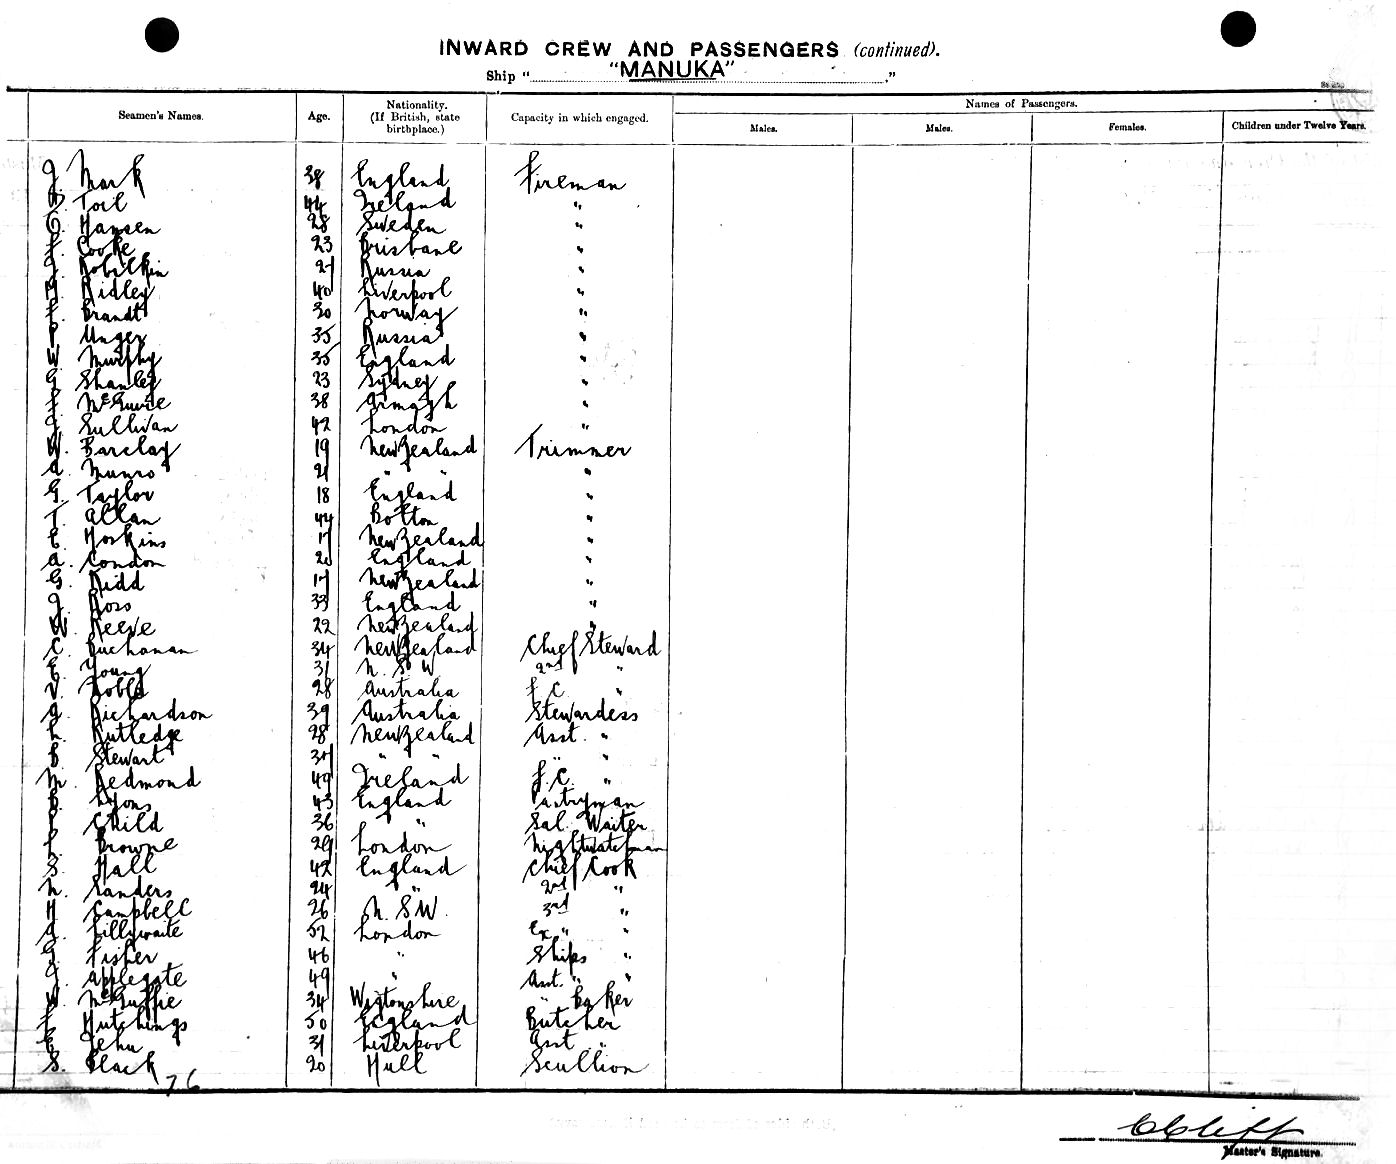 INWARD CREW AND PASSENGERS (continued).
Ship " "MANUKA" "
Seamen's Names. Age. Nationality. (If British, state birthplace.) Capacity in which engaged. Names of Passengers.
Males. Males. Females. Children under Twelve Years.
J. Mark 38 England Fireman
Toil 44 Ireland "
Hansen 28 Sweden "
Cooke 23 Brisbane "
Robilkin 27 Russia "
Ridley 40 Liverpool "
Brandt 30 Norway "
P Unger 35 Russia "
W Murphy 35 England "
G Shanley 23 Sydney "
McGuire 38 Armagh "
J Sullivan 42 London "
W. Barclay 19 New Zealand Trimmer
Munro 21 " " "
G Taylor 18 England "
T. Allan 44 Bolton "
E Hoskins 17 New Zealand "
A. Condon 20 England "
G. Kidd 17 New Zealand "
J. Ross 33 England "
W. Reeve 22 New Zealand "
C. Buchanan 34 New Zealand Chief Steward
E. Young 31 N. S W 2nd "
V. 28 Australia f C "
Richardson 39 Australia Stewardess
L. Rutledge 28 New Zealand Asst. "
Stewart 37 " " " "
M. Redmond 49 Ireland f. C. "
Lyons 43 England Pantryman
Child 36 " Sal. Waiter
Browne 29 London Nightwatchman
S. Hall 42 England Chief Cook
N. Sanders 24 " 2nd "
H Campbell 26 N. S W. 3rd "
Lillywaite 52 London Ex " "
G. Fisher 46 " Ships "
J. Applegate 49 " Asst. " "
W. McGuffie 34 Wigtonshire " Baker
Hutchings 50 England Butcher
Jehu 31 Liverpool Asst "
S. Black 20 Hull Scullion
76
CCliff
Master's Signature.